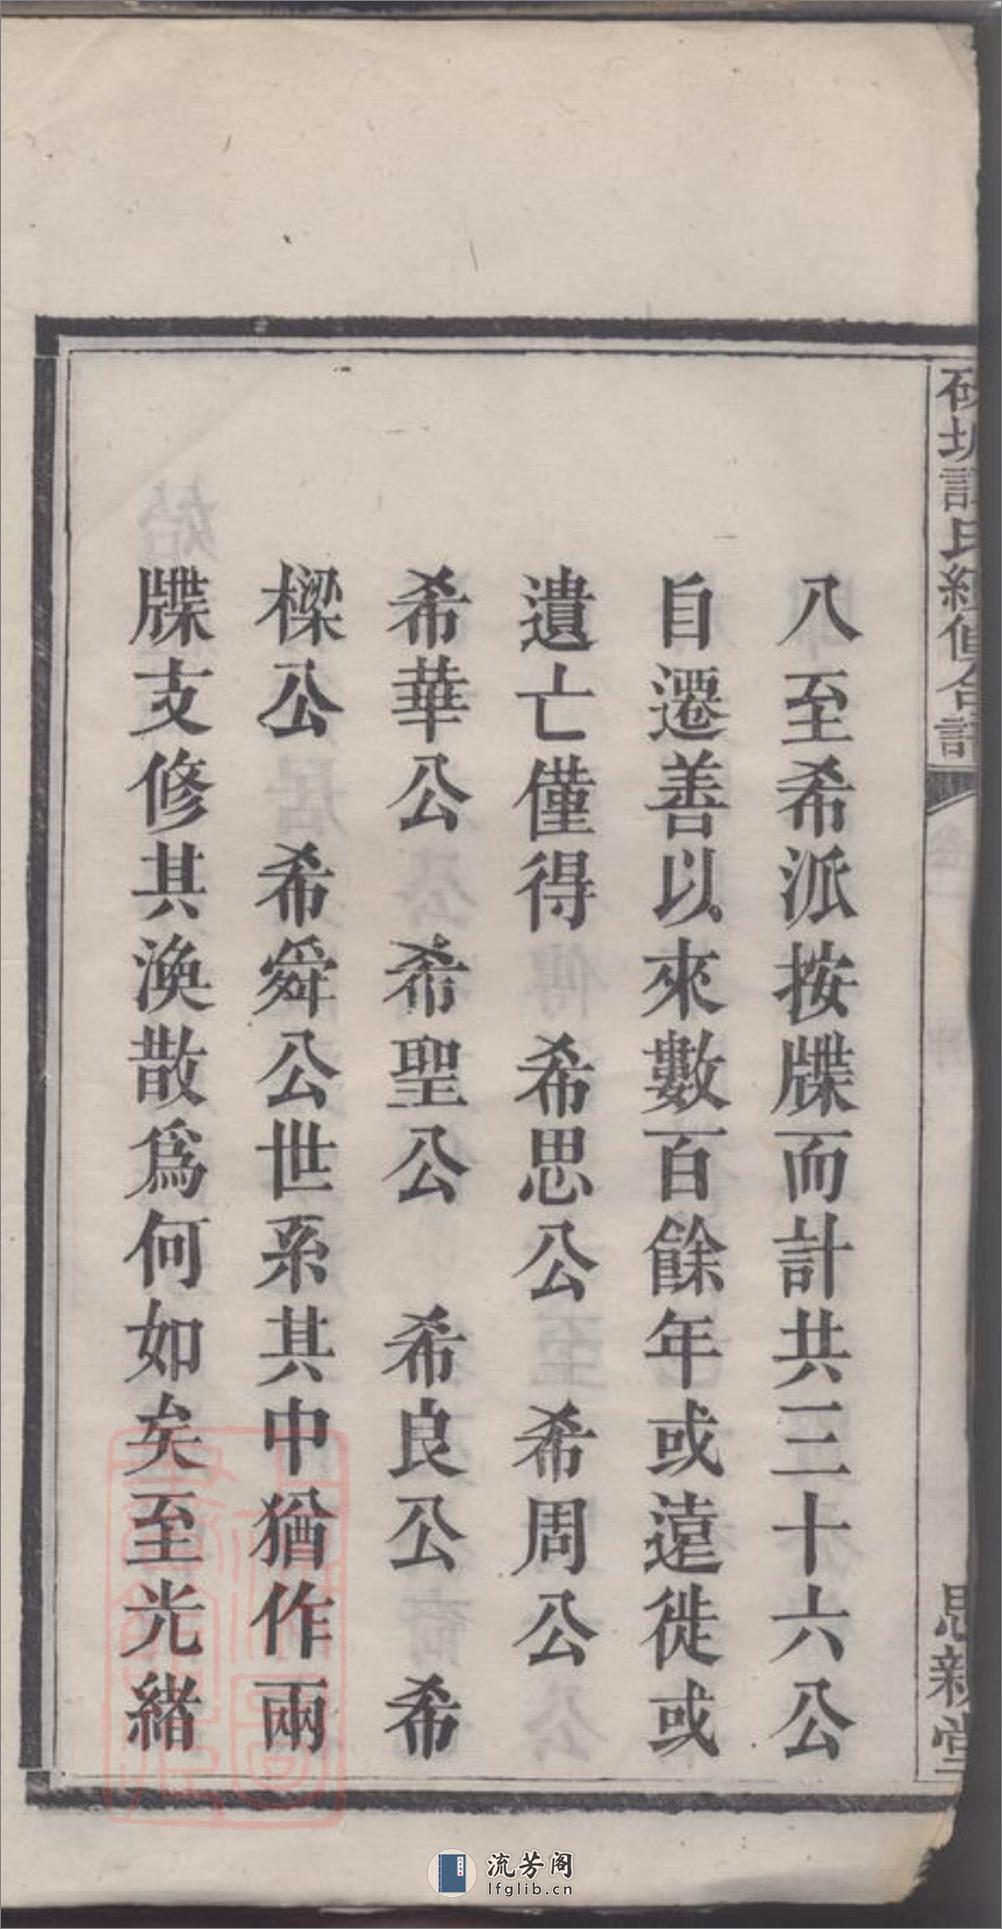 譚氏續修合譜
思親堂
八至希派按牒而計共三十六公
自遷善以來數百餘年或遠徙或
遺亡僅得　希思公　希周公
希華公　希聖公　希良公　希
樑公　希舜公世系其中猶作兩
牒支修其渙散爲何如矣至光緒
流芳阁
lfglib.cn